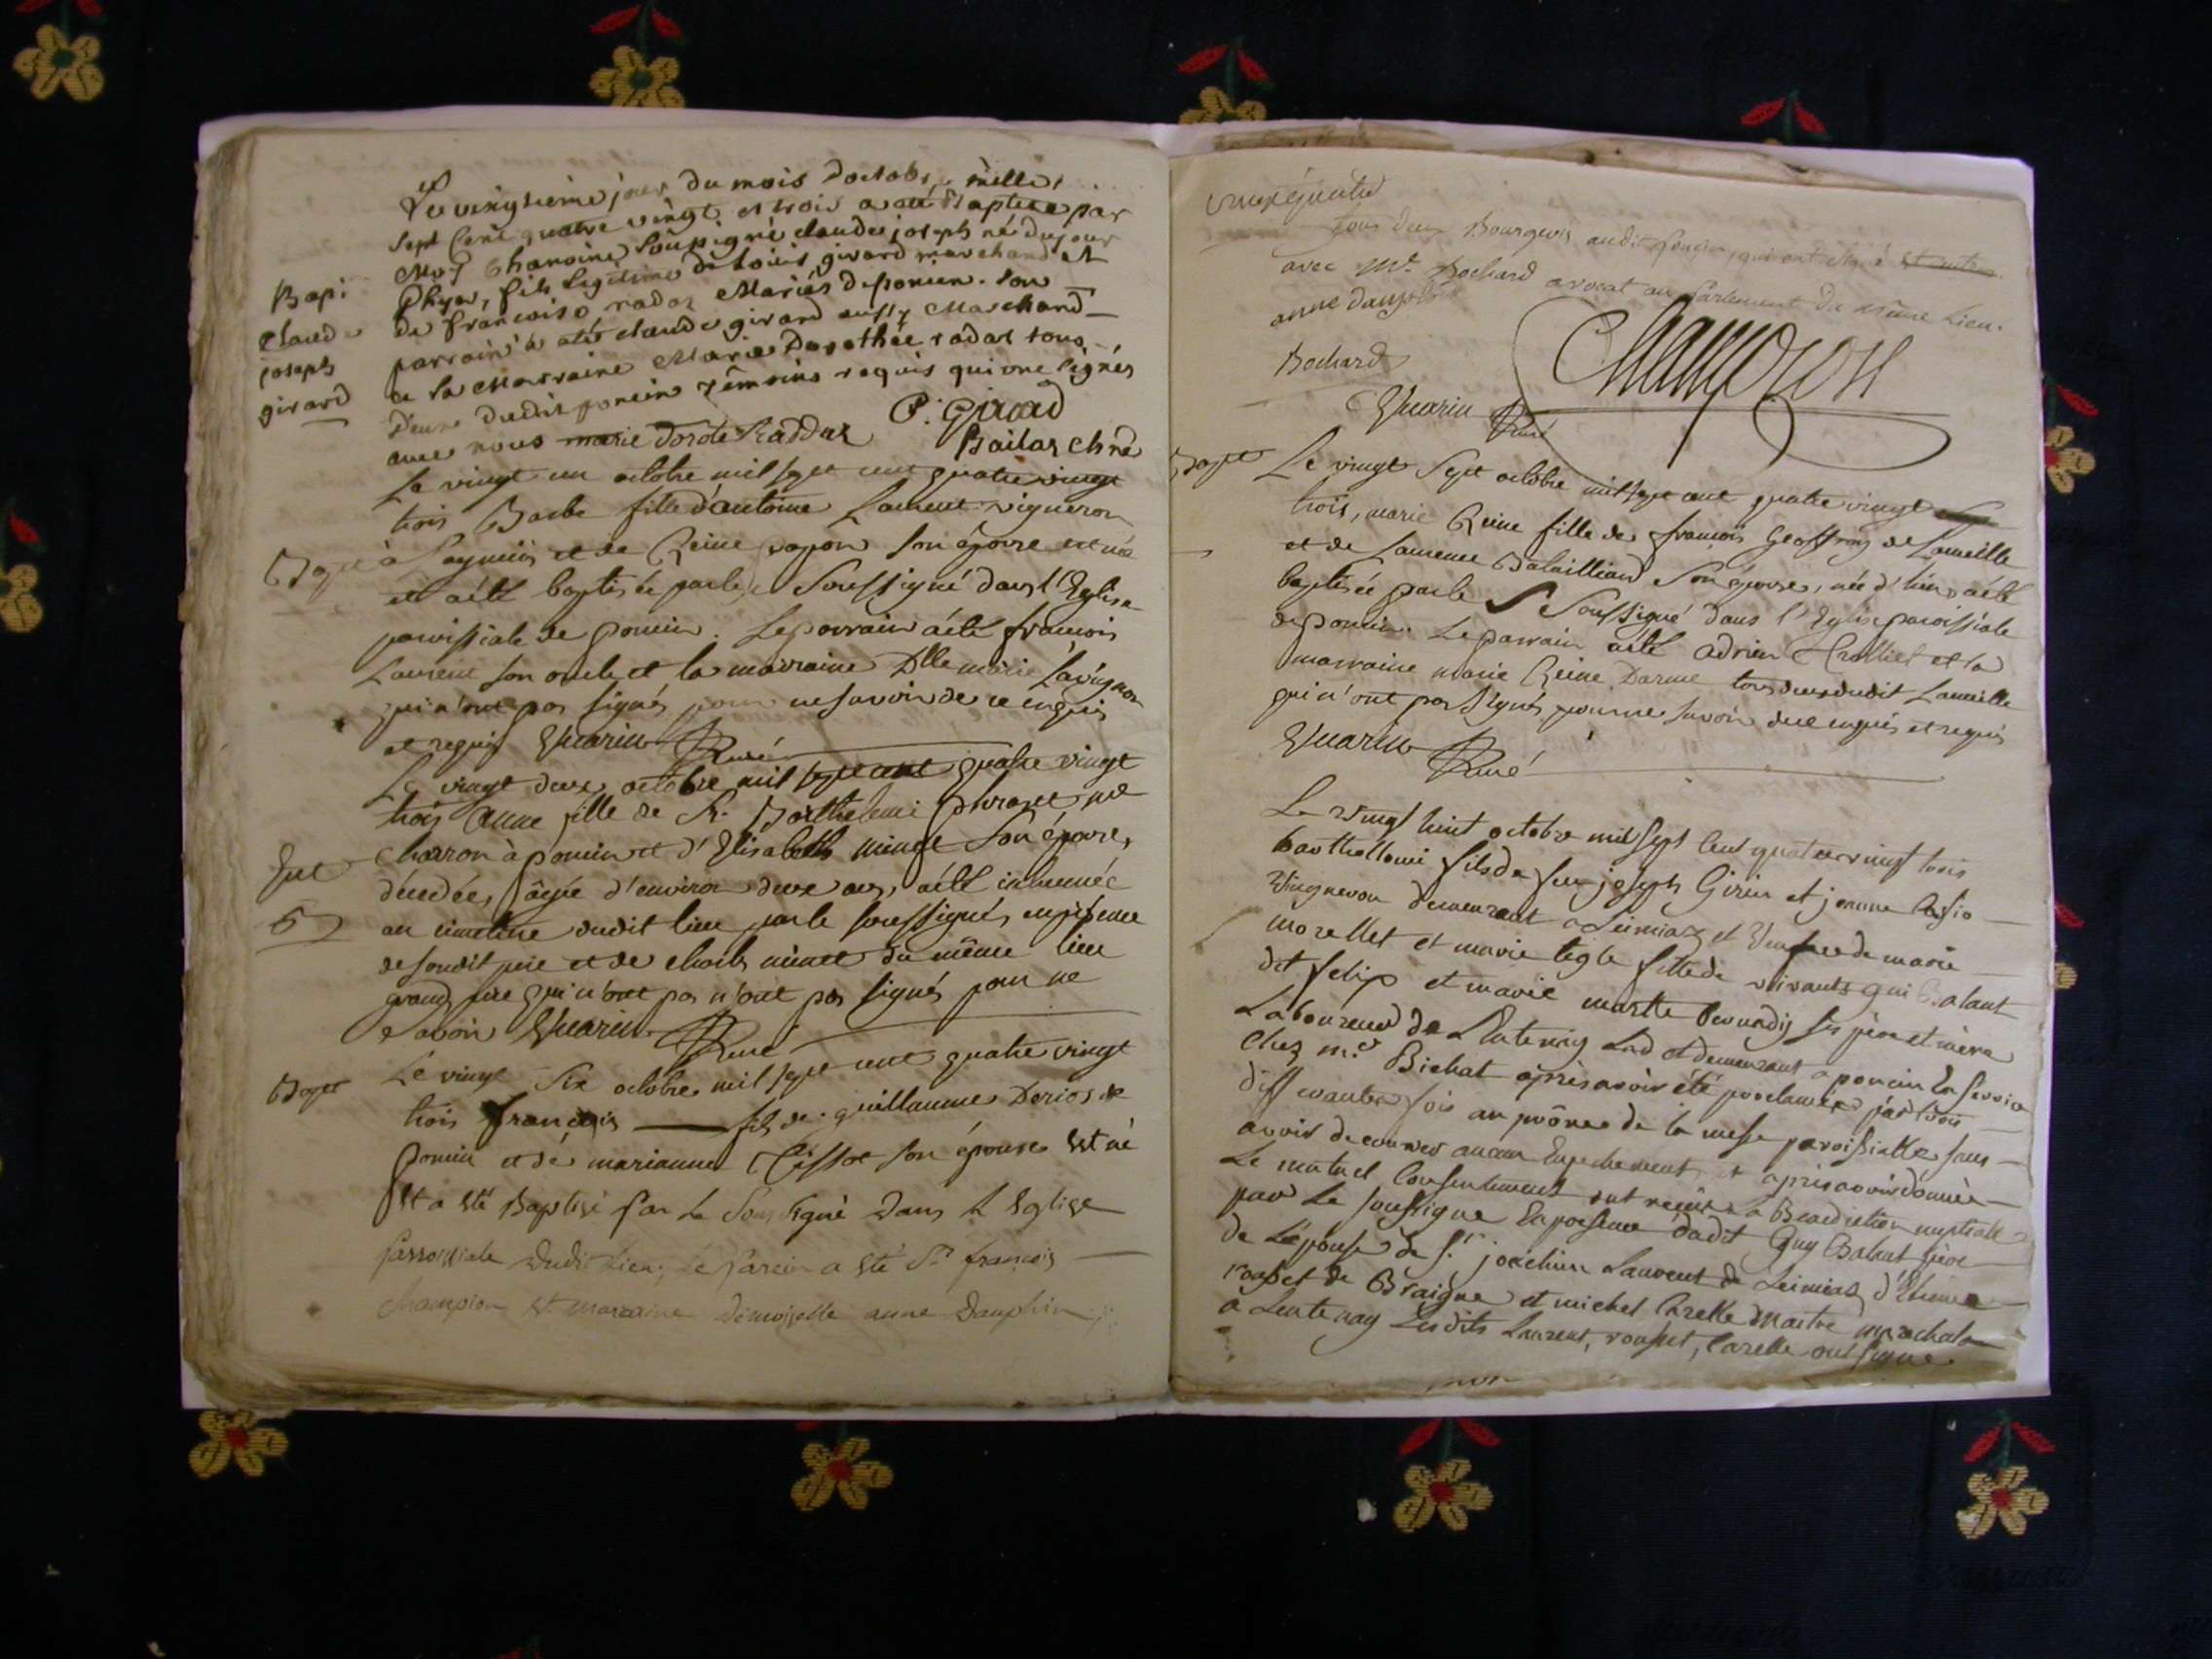 Le vingtieme jour du mois doctobre mille
sept Cent quatre vingt et trois a été Baptisé par
Moy Chanoine soussigné claude joseph né du jour
Bapt
d'hyer, fils legitime de Louis girard marchand et
claude
de francoise radaz Mariés de poncin. son
joseph
parrain a eté claude girard aussy Marchand
girard
et la Marraine Marie Dorothée radaz tous
Deux dudit poncin temoins requis qui ont signés
avec nous marie Dorote Raddaz P. Girard
Bailas chne
Le vingt un octobre mil sept cent quatre vingt
trois Barbe fille d'antoine Laurent vigneron
Bapt
à et de Reine son épouse est née
et a été baptisée par le Soussigné dans l'Eglise
paroissiale de poncin. Le parrain a été francois
Laurent son oncle et la marraine Dlle marie
qui n'ont pas signés pour ne savoir de ce enquis
et requis Guarin Curé
Le vingt deux octobre mil sept cent quatre vingt
trois Anne fille de Sr. Barthelemi
charron à poncin et d'Elisabeth minet son épouse,
Ent
décédée, âgée d'environ deux ans, a été inhumée
5
au cimetiere dudit lieu par le soussigné, en présence
de sondit pere et de charles minet du même lieu
grand pere qui n'ont pas n'ont pas signés pour ne
savoir Guarin Curé
Bapt
Le vingt Six octobre mil sept cent quatre vingt
trois françois fils de guillaume de
Poncin et de marianne Tissot son épouse Est né
Et a Eté Baptisé par Le Soussigné Dans L'Eglise
parroissiale Dudit Lieu; Le parein a Eté Sr françois
Champion Et Marraine Demoiselle anne Dauphin
tous deux Bourgeois audit Poncin, qui ont signé
avec Mr. Bochard avocat au Parlement Du même Lieu.
anne dauphin
Champion
Bochard
Guarin Curé
Bapt
Le vingt Sept octobre mil sept cent quatre vingt
trois, marie Reine fille de françois Geoffray de
et de Laurence son épouse, née d'hier a été
baptisée par le Soussigné dans l'Eglise paroissiale
de poncin. Le parrain a été adrien et la
marraine marie Reine tous deux dudit
qui n'ont pas signés pour ne savoir de ce enquis et requis
Guarin Curé
Le Vingt huit octobre mil sept cent quatre vingt trois
barthellomi fils de feu joseph Girin et jeanne
Vingneron demeurant a Leimiaz et Veuf de marie
morellet et marie fille de vivants guy Balant
dit felip et marie marthe ses père et mère
Laboureur de L'antenay Lad et demeurant a poncin En service
Chez mr. Bichat après avoir été proclamés par trois
differantes fois au prône de la messe paroissialle sans
avoir decouvert aucun Empechement, et après avoir donné
Le mutuel Consentement ont reçus La Benediction nuptialle
par Le soussigné En presence dudit Guy Balant père
de L'épouse de Sr. joachim Laurent de Leimiaz d'Etienne
rouset de Braigne et michel Carelle Maitre marechal
a Lentenay Lesdits Laurent, rouset, Carelle ont signé